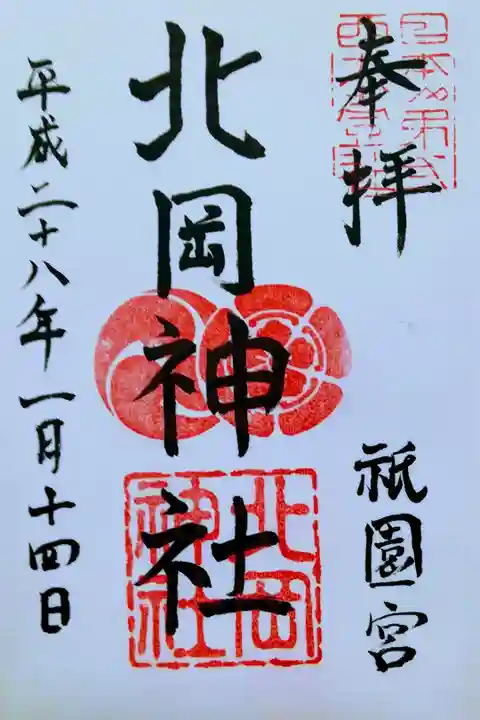 奉拝
祇園宮
北岡神社
北岡
神社
平成二十八年一月十四日